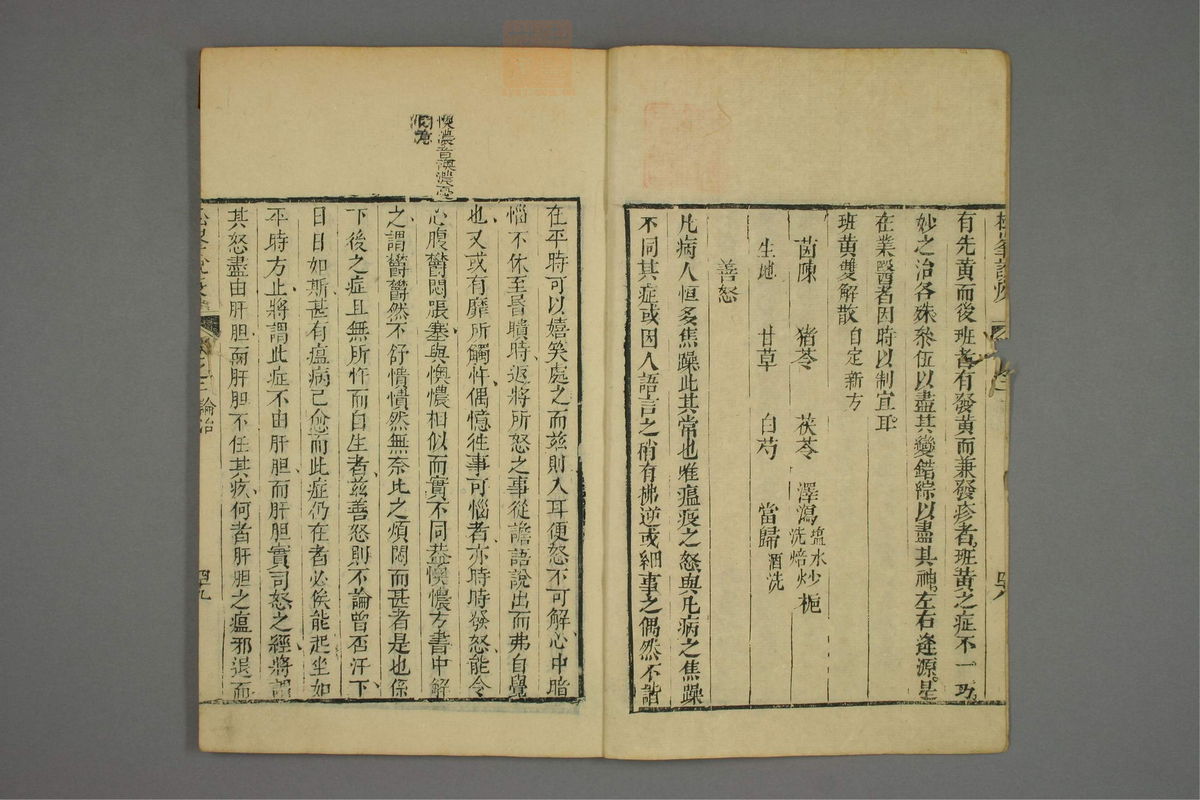 有先黄而後班者有發黄而兼發疹者班黄之症不一巧
妙之治各殊參伍以盡其變錯綜以盡其神左右逢源是
在業醫者因時以制宜耳
班黄雙解散 自定新方
茵陳 猪苓 茯苓 澤瀉塩水炒 梔
洗焙
生地 甘草 白芍 當歸酒洗
善怒
凡病人恒多焦躁此其常也唯瘟疫之怒與凡病之焦躁
不同其症或因人語言之稍有拂逆或細事之偶然不諧
四八
在平時可以嬉笑處之而兹則入耳便怒不可解心中暗
惱不休至昏聵時返將所怒之事從譫語說出而弗自覺
也又或有靡所觸忤偶憶徃事可惱者亦時時發怒能令
心腹欝悶脹塞與懊憹相似而實不同葢懊憹方書中解
之謂欝欝然不舒憒憒然無奈比之煩悶而甚者是也係
下後之症且無所忤而自生者兹善怒則不論曾否汗下
日日如斯甚有瘟病已愈而此症仍在者必俟能起坐如
平時方止將謂此症不由肝胆而肝胆實司怒之經將謂
其怒盡由肝胆而肝胆不任其疚何者肝胆之瘟邪退而
論治
四九